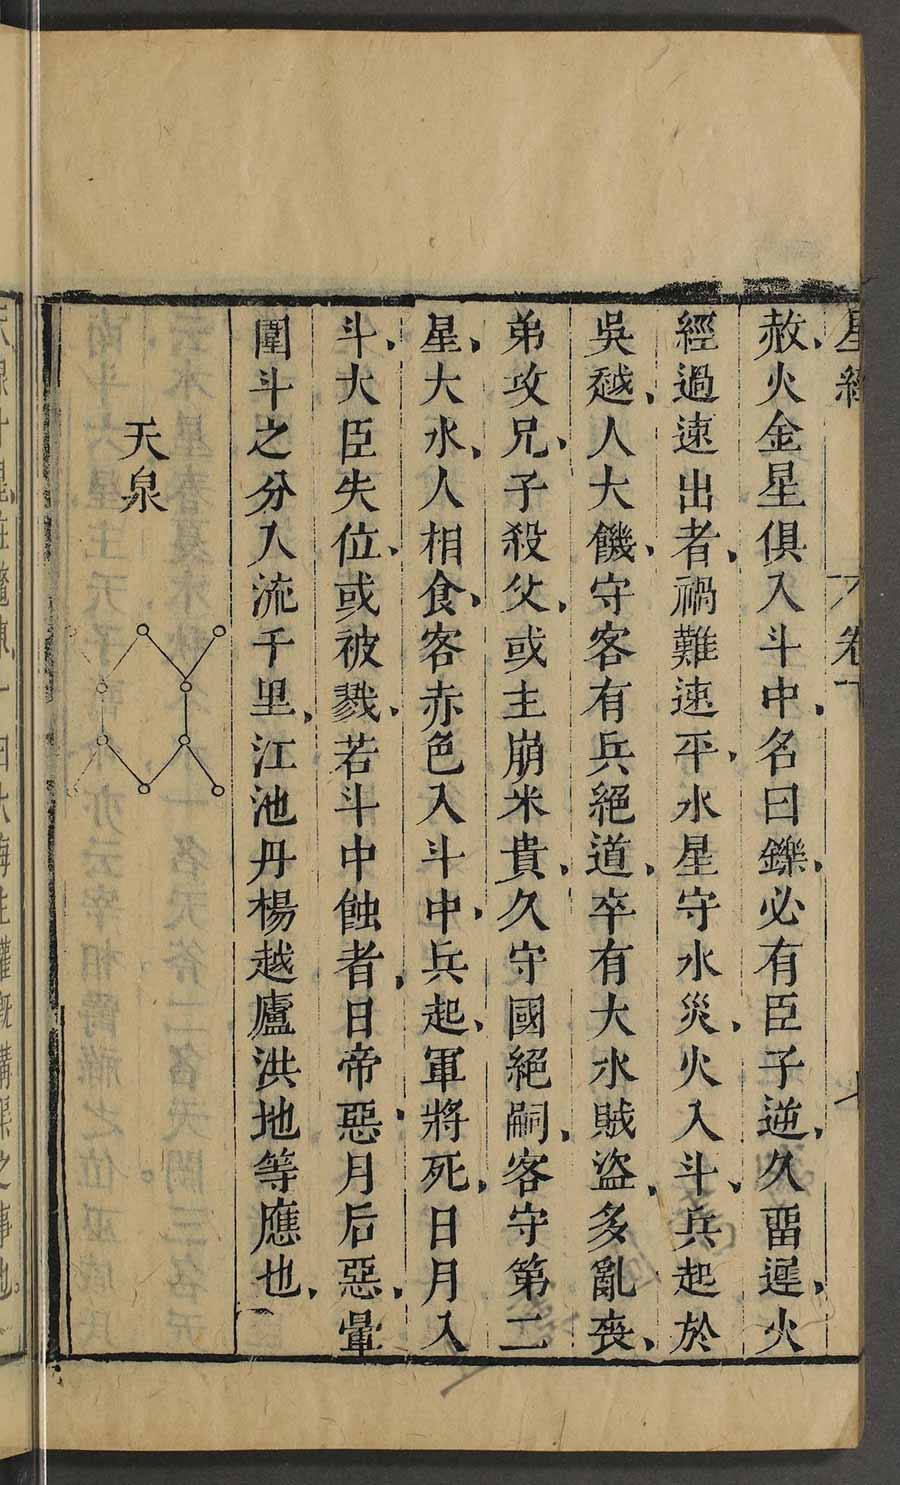 星經
卷下
赦火金星俱入斗中名曰鑠必有臣子逆久畱遲火
經過速出者禍難速平水星守水災火入斗兵起於
吳越人大饑守客有兵絕道卒有大水賊盜多亂喪
弟攻兄子殺父或主崩米貴久守國絕嗣客守第二
星大水人相食客赤色入斗中兵起軍將死日月入
斗大臣失位或被戮若斗中蝕者日帝惡月后惡暈
圍斗之分入流千里江池丹楊越廬洪地等應也
天泉